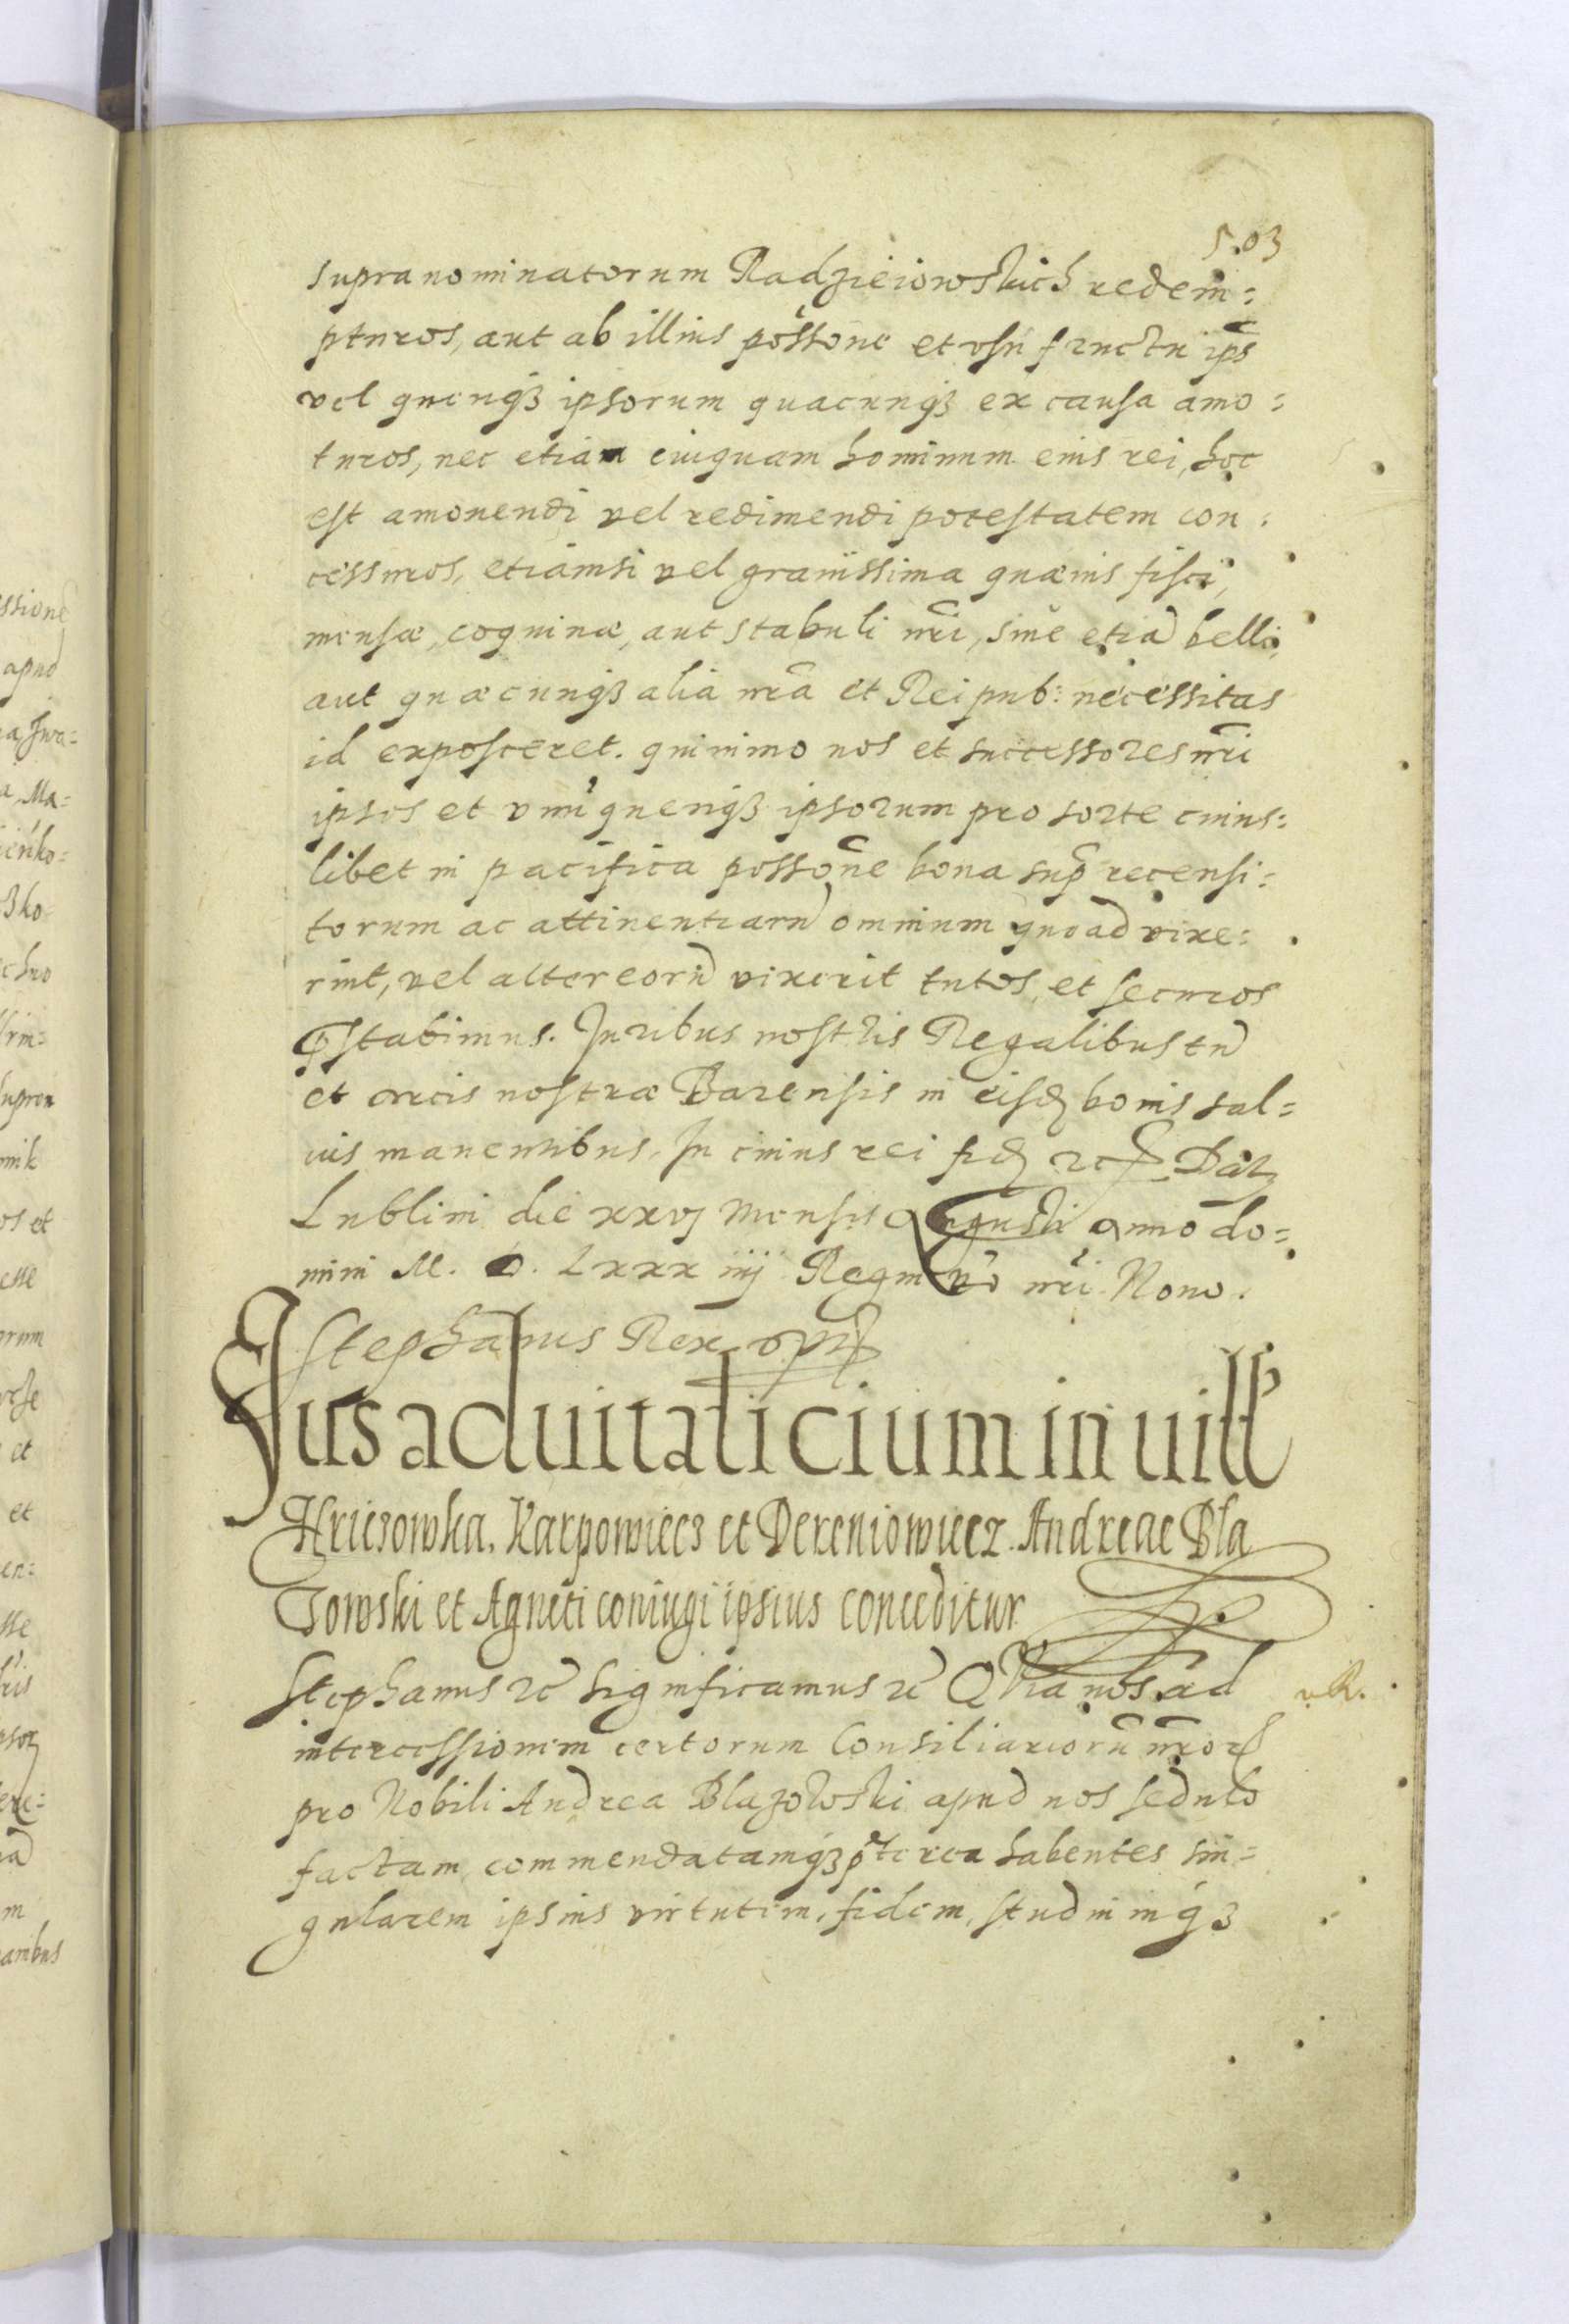 503
supranominatorum Radzieiowskich redem:
pturos, aut ab illius possōne et usu fructu ips̄
vel quenq3 ipsorum quacunq3 ex causa amo:
turos, nec etiam cuiquam hominum eius rei, hoc
est amouendi vel redimendi potestatem con:
cessuros, etiamsi vel grauissima quæuis fisci,
mensæ, coquinæ, aut stabuli nr̄i, siue etiā belli,
aut quæcunq3 alia nr̄a et Reipub: necessitas
id exposceret. quinimo nos et successores nr̄i
ipsos et vnūquenq3 ipsorum pro sorte cuius:
libet in pacifica possōne bona sup̄ recensi:
torum ac attinentiarū omnium quoad vixe:
rint, vel alter eorū vixerit tutos, et securos
p̄stabimus. Iuribus nostris Regalibus tn̄
et arcis nostræ Barensis in eisd bonis sal=
uis manentibus. In cuius rei fid etc Dat
Lublini die xxvj mensis Augusti anno do=
mini M. D. Lxxx iiij Regni vō nr̄i Nono.
Stephanus Rex
Jus aduitalicium in uill
Hriczowka, Karpowiecz et Dereniowiecz. Andreae Bla
zowski et Agneti coniugi ipsius conceditur
Stephanus etc̄ Significamus etc̄ QVia nos ad
intercessionem certorum Consiliariorū nr̄or
pro Nobili Andrea Blazowski apud nos sedulo
factam, commendatamq3 p̄terea habentes sin=
gularem ipsius virtutem, fidem, studiumq3